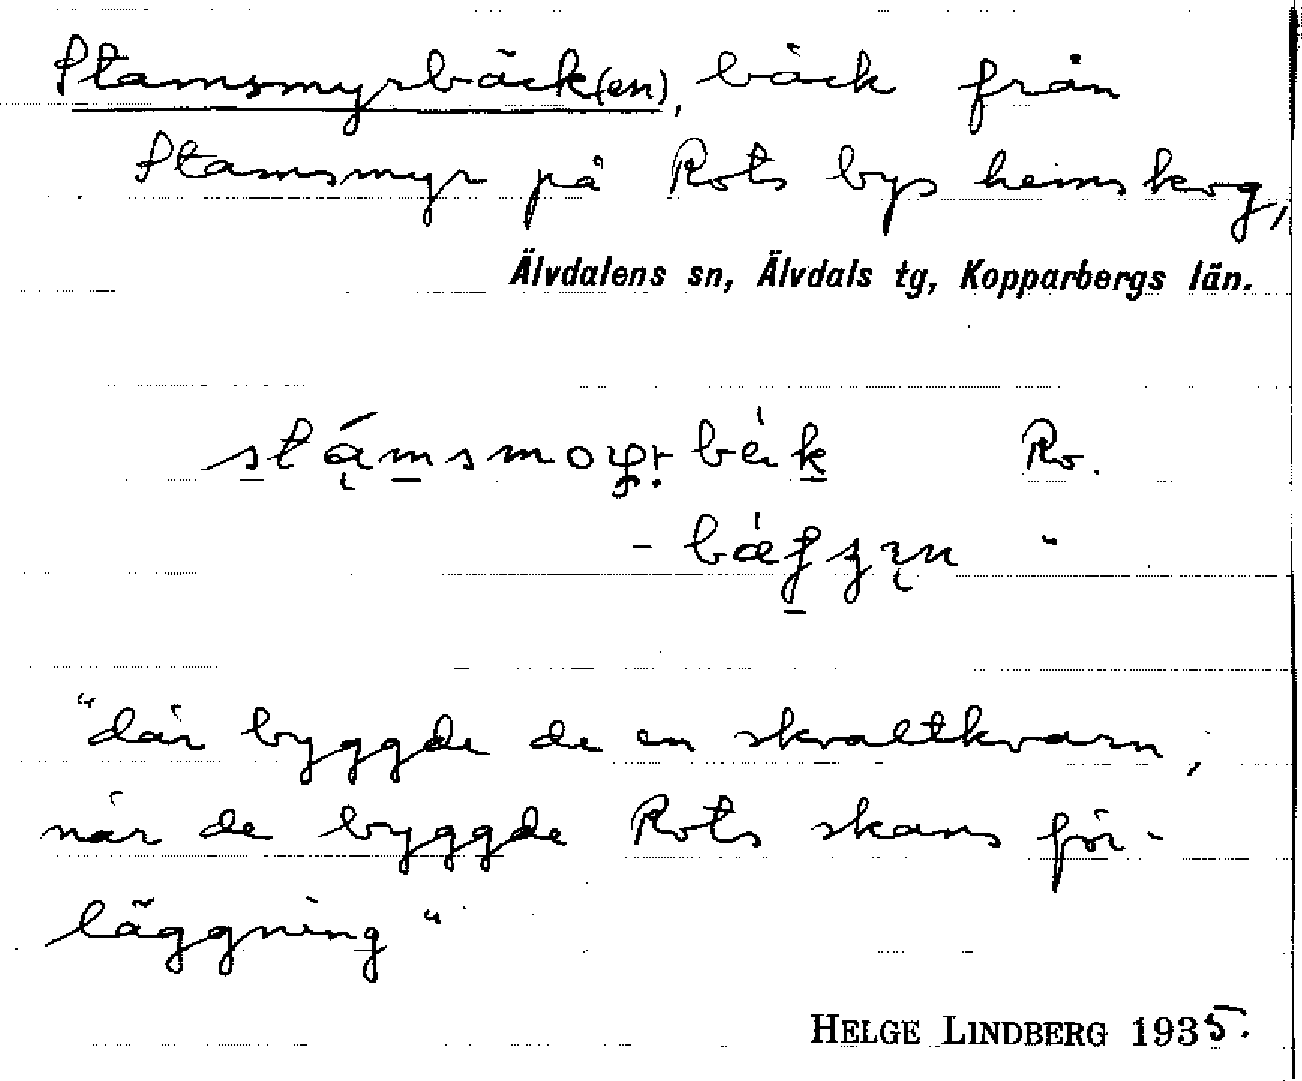 Stamsmyrbäck(en), bäck från
Stamsmyr på Rots bys hemskog,
Älvdalens sn, Älvdals tg, Kopparbergs län.
Ro.
"där byggde de en skvaltkvarn,
när de byggde Rots skans för-
läggning"
HELGE LINDBERG 1935.